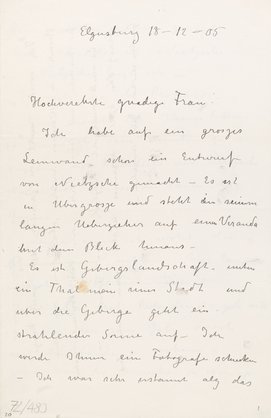 Elgersburg 18-12-05
Hochverehrte gnädige Frau!
Ich habe auf ein groszes
Leinwand schon ein Entwurf
von Nietzsche gemacht - Es ist
in Ubergrosze und steht in seinem
langen Ueberzieher auf einer Veranda
mit dem Blick hinaus -
Es ist Gebirgslandschaft - unten
ein Thal mein einer Stadt und
über die Gebirge geht ein
strahlender Sonne auf - Ich
werde Ihnen ein Fotografe schicken
- Ich war sehr erstaunt als das